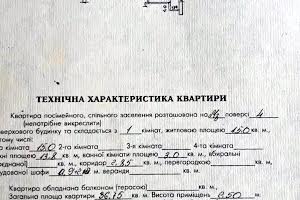 ТЕХНІЧНА ХАРАКТЕРИСТИКА КВАРТИРИ
Квартира посімейного, спільного заселення розташована на поверсі 4
(непотрібне викреслити)
верхового будинку та складається з 1 кімнат, житловою площею 15.0 кв. м,
тому числі:
кімната 15.0 2-га кімната 3-я кімната 4-та кімната
площею 13.8 кв. м, ванної кімнати площею 3.0 кв. м, вбиральні
кв. м, коридору 2.85 кв. м, перегородкою кв. м,
шафи кв. м, веранди
Квартира обладнана балконом (терасою) кв. м.
Загальна площа квартири 36.75 кв. м. Висота приміщень 2.50 м.